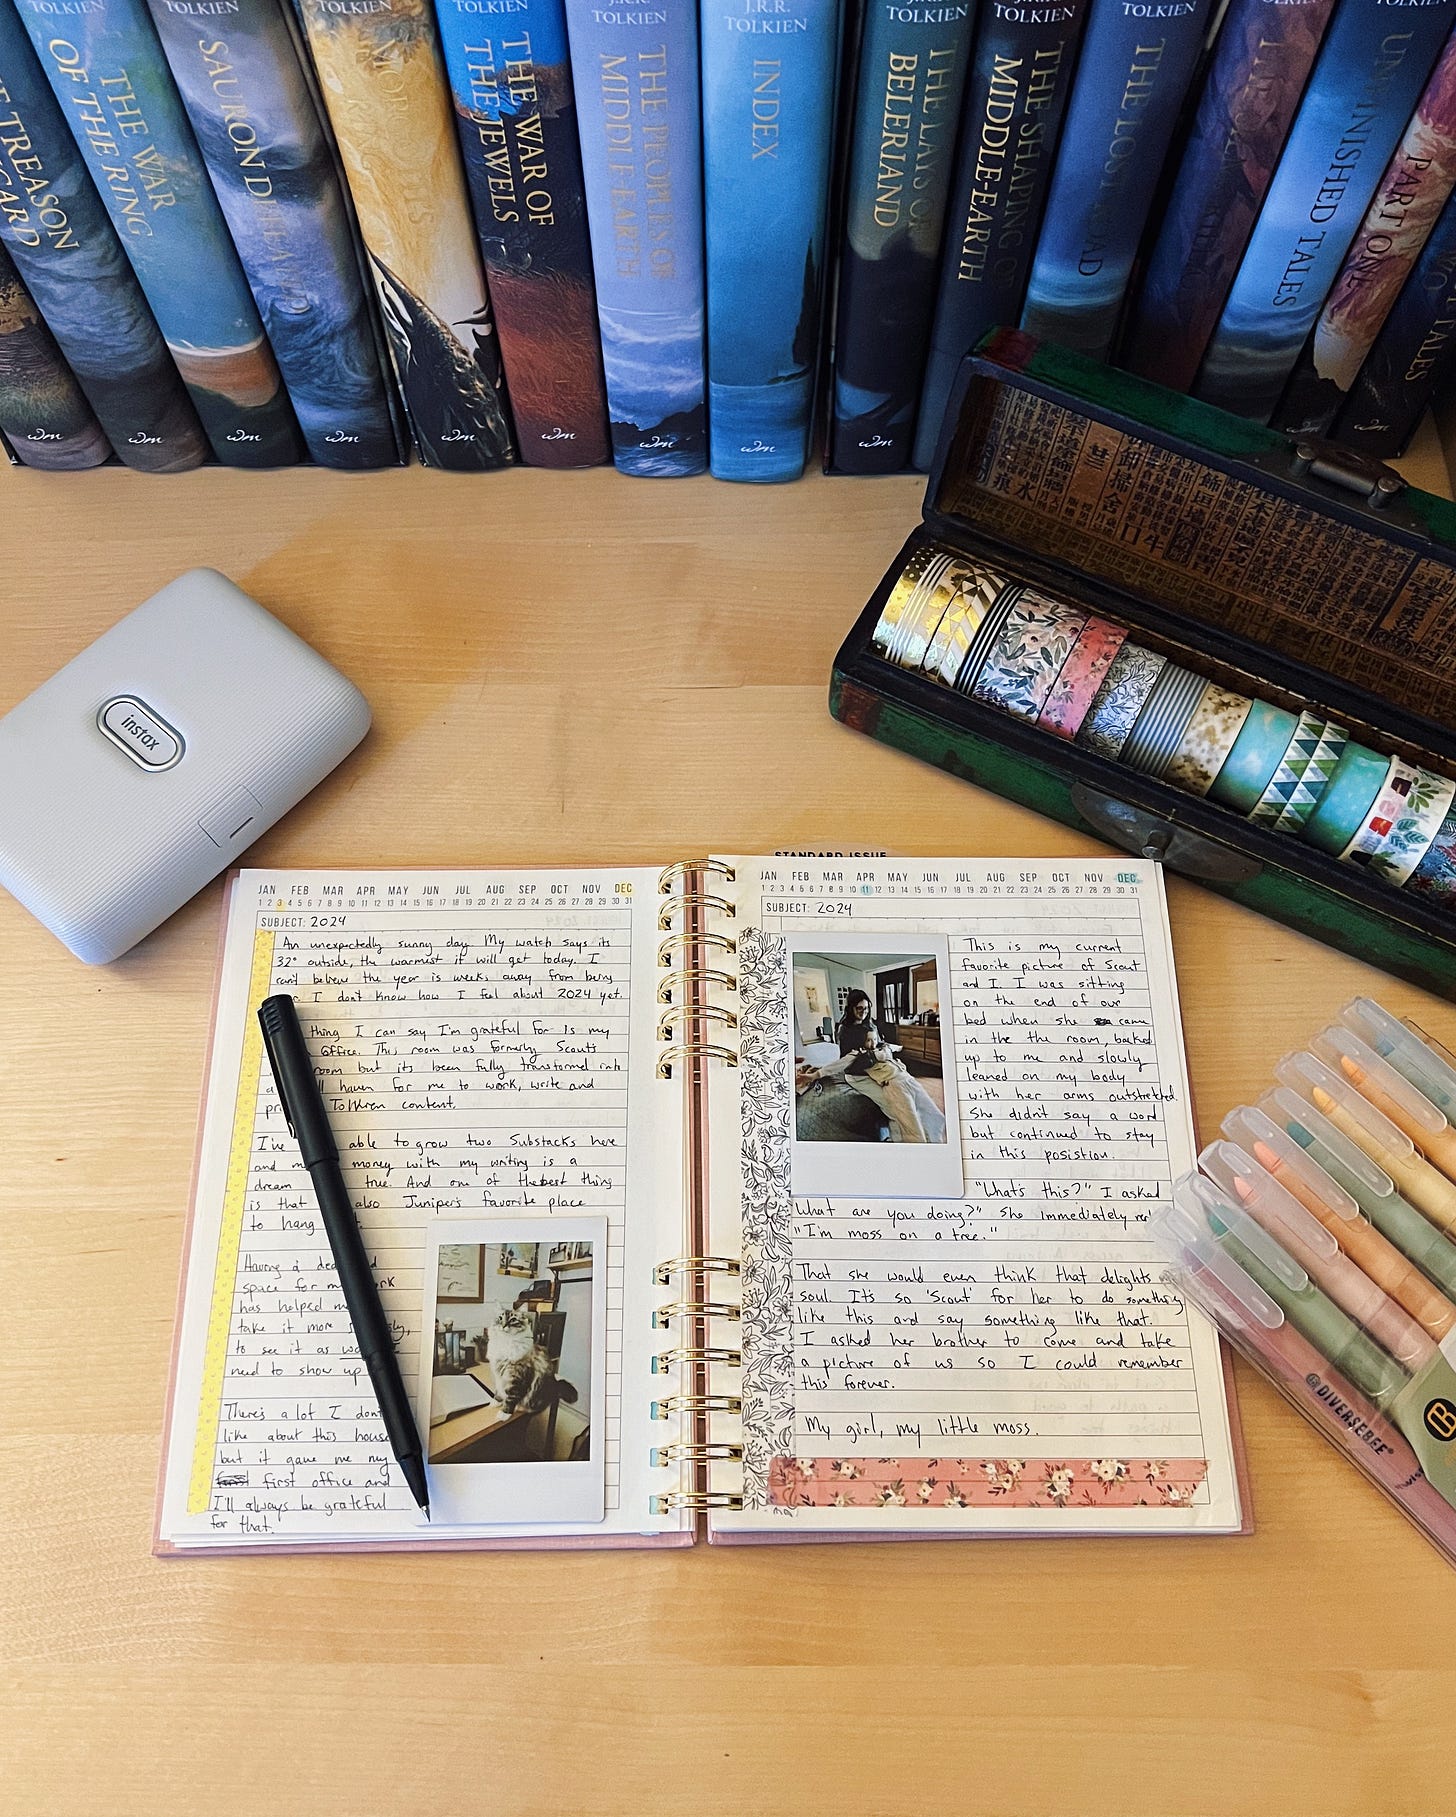 TOLKIEN
THE TREASON
OF ISENGARD
TOLKIEN
THE WAR
OF THE RING
TOLKIEN
SAURON DEFEATED
TOLKIEN
MORGOTH'S
TOLKIEN
THE WAR OF
THE JEWELS
J.R.R.
TOLKIEN
THE PEOPLES OF
MIDDLE-EARTH
J.R.R.
TOLKIEN
INDEX
J.R.R.
TOLKIEN
THE LAYS OF
BELERIAND
J.R.R.
TOLKIEN
THE SHAPING OF
MIDDLE-EARTH
TOLKIEN
THE LOST ROAD
TOLKIEN
THE
TOLKIEN
UNFINISHED TALES
PART ONE
TALES
instax
STANDARD ISSUE
JAN FEB MAR APR MAY JUN JUL AUG SEP OCT NOV DEC
1 2 3 4 5 6 7 8 9 10 11 12 13 14 15 16 17 18 19 20 21 22 23 24 25 26 27 28 29 30 31
SUBJECT: 2024
An unexpectedly sunny day. My watch says its
32° outside, the warmest it will get today. I
can't believe the year is weeks away from being
I don't know how I feel about 2024 yet.
thing I can say I'm grateful for is my
office. This room was formerly Scout's
room but its been fully transformed into
haven for me to work, write and
Tolkien content.
I've able to grow two Substacks here
and money with my writing is a
dream true. And one of the best thing
is that also Juniper's favorite place
to hang
Having a
space for
has helped
take it more
to see it as I
need to show up
There's a lot I don't
like about this house
but it gave me my
first office and
I'll always be grateful
for that.
JAN FEB MAR APR MAY JUN JUL AUG SEP OCT NOV DEC
1 2 3 4 5 6 7 8 9 10 11 12 13 14 15 16 17 18 19 20 21 22 23 24 25 26 27 28 29 30 31
SUBJECT: 2024
This is my current
favorite picture of Scout
and I. I was sitting
on the end of our
bed when she came
in the the room, backed
up to me and slowly
leaned on my body
with her arms outstretched.
She didn't say a word
but continued to stay
in this posistion.
"What's this?" I asked
What are you doing?" She immediately
"I'm moss on a tree."
That she would even think that delights
soul. It's so 'Scout' for her to do something
like this and say something like that.
I asked her brother to come and take
a picture of us so I could remember
this forever.
My girl, my little moss.
DIVERSEBEE